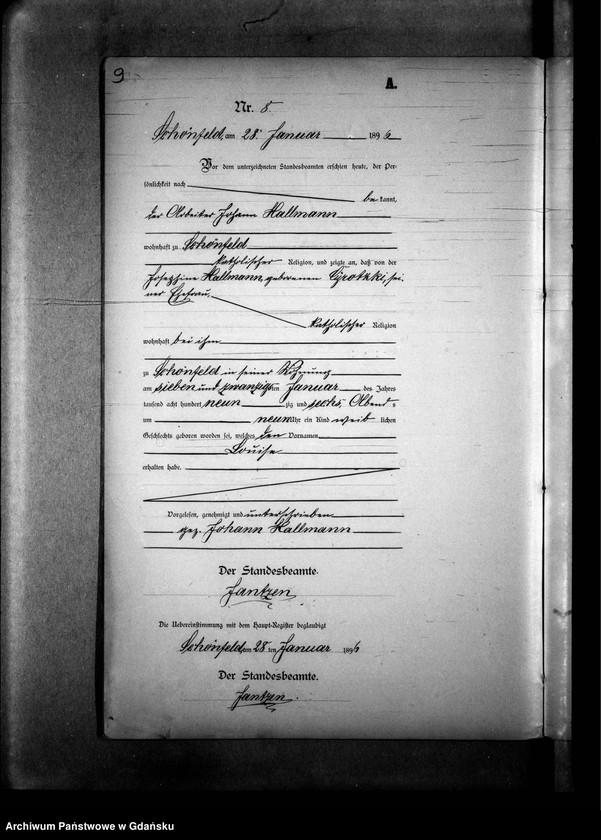 9
A.
Nr. 8.
Schönfeld, am 28. Januar 1896
Vor dem unterzeichneten Standesbeamten erschien heute, der Per-
sönlichkeit nach
be kannt,
der Arbeiter Johann Hallmann
wohnhaft zu Schönfeld
katholischer Religion, und zeigte an, daß von der
Josephine Hallmann, geborenen, sei-
ner Ehefrau,
katholischer Religion
wohnhaft bei ihm
zu Schönfeld in seiner Wohnung
am sieben und zwanzig ten Januar des Jahres
tausend acht hundert neun zig und sechs Abend s
um neun Uhr ein Kind weib lichen
Geschlechts geboren worden sei, welches den Vornamen
Louise
erhalten habe.
Vorgelesen, genehmigt und unterschrieben
gez. Johann Hallmann
Der Standesbeamte.
Jantzen
Die Uebereinstimmung mit dem Haupt-Register beglaubigt
Schönfeld, am 28 ten Januar 1896
Der Standesbeamte.
Jantzen.
Archiwum Państwowe w Gdańsku